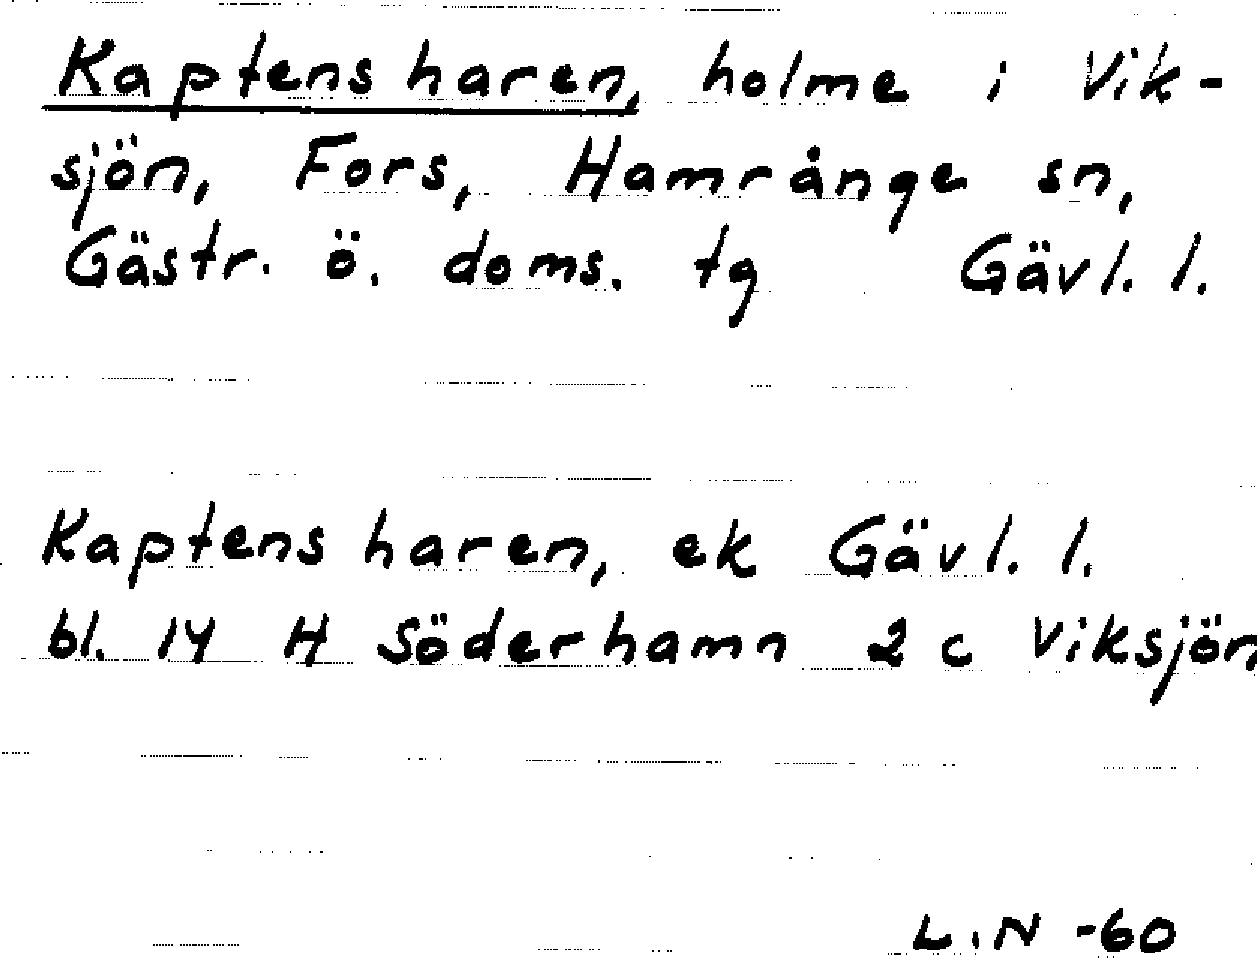 Kaptensharen, holme i Vik-
sjön, Fors, Hamrånge sn,
Gästr. ö. doms. tg Gävl. l.
Kaptensharen, ek Gävl. l.
bl. 14 H Söderhamn 2 c Viksjön
L.N -60